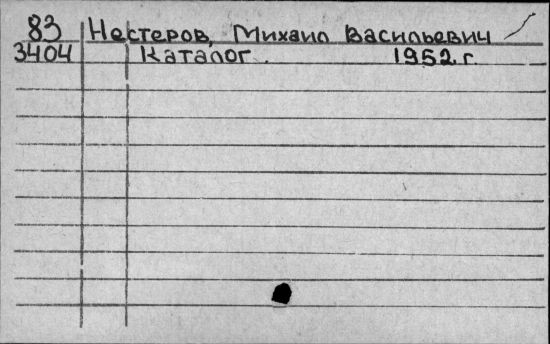 83 Нестеров, Михаил Васильевич
3404 Каталог. 1952 г.